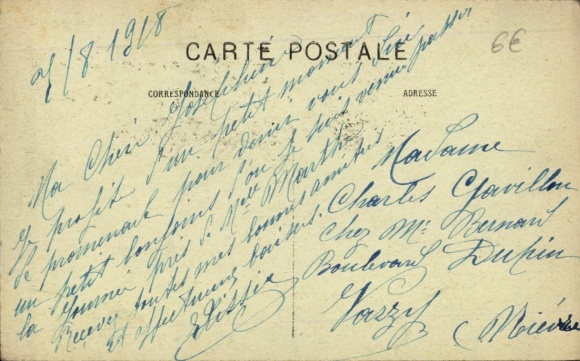 7/8 1918
6€
CARTE POSTALE
CORRESPONDANCE
ADRESSE
Ma Chère Joséphine
Je profite d'un petit moment
de promenade pour venir vous dire
un petit bonjour d'où je suis venue passer
la journée près de Mlle Marthe
Recevez toutes mes bonnes amitiés
et affectueux baisers.
Madame
Charles Gavillon
Chez Mr Bernard
Boulevard Dupin
Varzy
(Nièvre